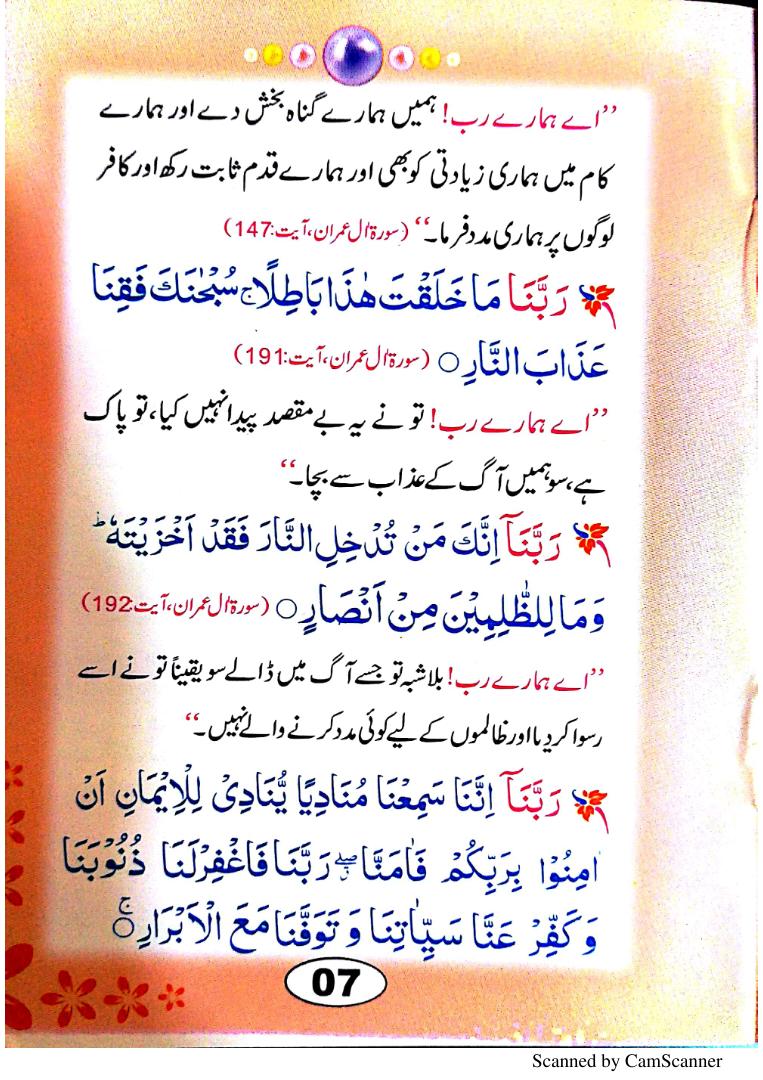 ’’اے ہمارے رب! ہمیں ہمارے گناہ بخش دے اور ہمارے
کام میں ہماری زیادتی کو بھی اور ہمارے قدم ثابت رکھ اور کافر
لوگوں پر ہماری مدد فرما۔‘‘ (سورۃ ال عمران، آیت:147)
رَبَّنَا مَا خَلَقْتَ هٰذَا بَاطِلًا ۚ سُبْحٰنَكَ فَقِنَا
عَذَابَ النَّارِ ○ (سورۃ ال عمران، آیت:191)
’’اے ہمارے رب! تو نے یہ بے مقصد پیدا نہیں کیا، تو پاک
ہے، سو ہمیں آگ کے عذاب سے بچا۔‘‘
رَبَّنَآ اِنَّكَ مَنْ تُدْخِلِ النَّارَ فَقَدْ اَخْزَيْتَهٗ ؕ
وَمَا لِلظّٰلِمِيْنَ مِنْ اَنْصَارٍ ○ (سورۃ ال عمران، آیت:192)
’’اے ہمارے رب! بلاشبہ تو جسے آگ میں ڈالے سو یقیناً تو نے اسے
رسوا کر دیا اور ظالموں کے لیے کوئی مدد کرنے والے نہیں۔‘‘
رَبَّنَآ اِنَّنَا سَمِعْنَا مُنَادِيًا يُّنَادِىْ لِلْاِيْمَانِ اَنْ
اٰمِنُوْا بِرَبِّكُمْ فَاٰمَنَّا ۖ رَبَّنَا فَاغْفِرْلَنَا ذُنُوْبَنَا
وَكَفِّرْ عَنَّا سَيِّاٰتِنَا وَ تَوَفَّنَا مَعَ الْاَبْرَارِ ○ ۚ
07
Scanned by CamScanner